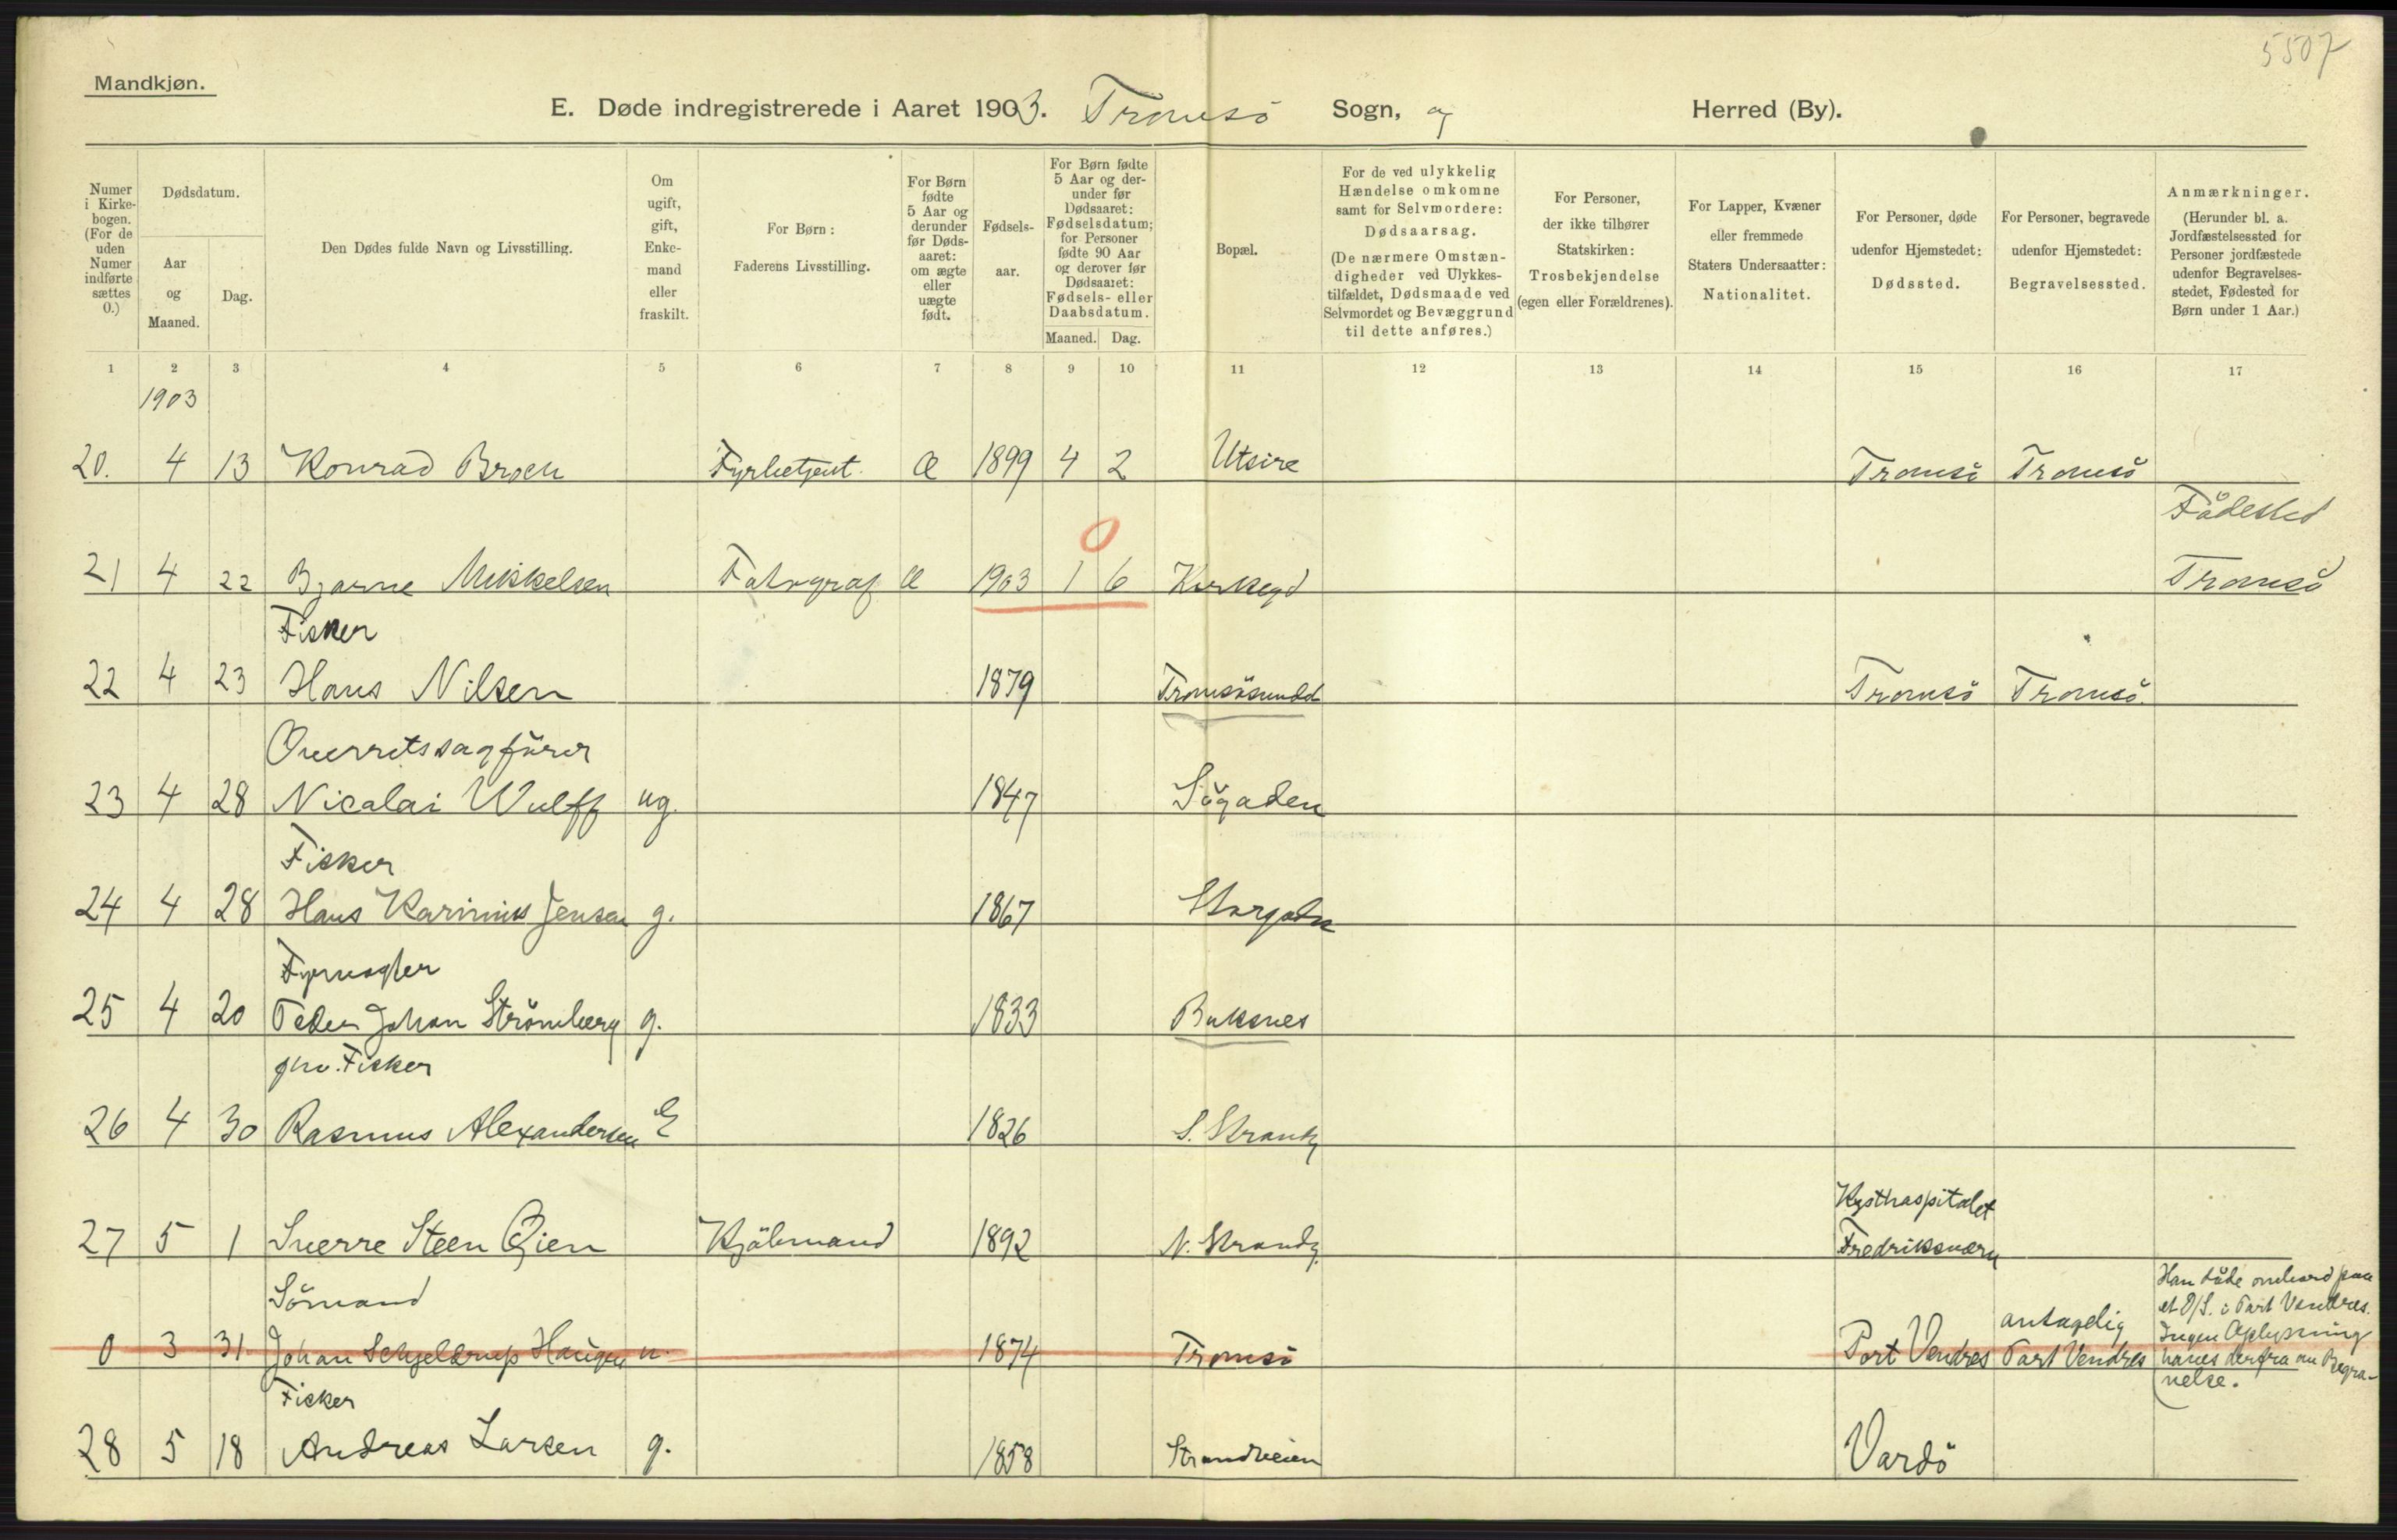 5507
Mandkjøn.
E. Døde indregistrerede i Aaret 1903. Tromsö Sogn, og Herred (By).
Numer i Kirkebogen. (For de uden Numer indførte sættes 0.)
Dødsdatum.
Aar og Maaned.
Dag.
Den Dødes fulde Navn og Livsstilling.
Om ugift, gift, Enkemand eller fraskilt.
For Børn: Faderens Livsstilling.
For Børn fødte 5 Aar og derunder før Dødsaaret: om ægte eller uægte født.
Fødselsaar.
For Børn fødte 5 Aar og derunder før Dødsaaret: Fødselsdatum; for Personer fødte 90 Aar og derover før Dødsaaret: Fødsels- eller Daabsdatum.
Maaned. Dag.
Bopæl.
For de ved ulykkelig Hændelse omkomne samt for Selvmordere: Dødsaarsag. (De nærmere Omstændigheder ved Ulykkestilfældet, Dødsmaade ved Selvmordet og Bevæggrund til dette anføres.)
For Personer, der ikke tilhører Statskirken: Trosbekjendelse (egen eller Forældrenes).
For Lapper, Kvæner eller fremmede Staters Undersaatter: Nationalitet.
For Personer, døde udenfor Hjemstedet: Dødssted.
For Personer, begravede udenfor Hjemstedet: Begravelsessted.
Anmærkninger. (Herunder bl. a. Jordfæstelsessted for Personer jordfæstede udenfor Begravelsesstedet, Fødested for Børn under 1 Aar.)
1 2 3 4 5 6 7 8 9 10 11 12 13 14 15 16 17
1903
20. 4 13 Konrad Broch Fyrbetjent. Æ 1899 4 2 Utsire Tromsö Tromsö
Födested
0
21 4 22 Bjarne Mikkelsen Fotograf Æ 1903 1 6 Kirkegd Tromsö
Fisker
22 4 23 Hans Nilsen 1879 Tromsösundet Tromsö Tromsö.
Overretssagförer
23 4 28 Nicolai Wulff ug. 1847 Sögaden
Fisker
24 4 28 Hans Jensen g. 1867 Storgaden
Fyrvogter
25 4 20 Peder Johan Strömberg g. 1833 Buksnes
fhv. Fisker
26 4 30 Rasmus Alexandersen E 1826 S. Strandg
Kysthospitalet
27 5 1 Sverre Steen Øien Kjöbmand 1892 N. Strandg. Fredriksværn
Sömand
Han döde ombord paa et D/S. i Port Vendres. Ingen Oplysning haves derfra om Begravelse.
antagelig
0 3 31 Johan Schjeldrup Haugen u. 1874 Tromsö Port Vendres Port Vendres
Fisker
28 5 18 Andreas Larsen g. 1858 Strandveien Vardö